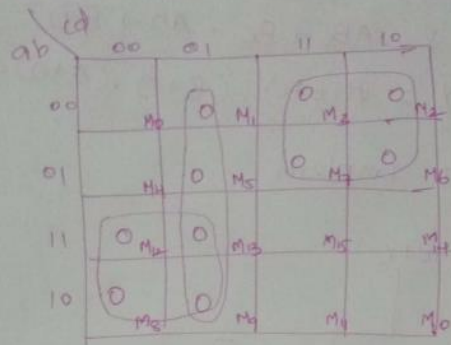 cd
ab 00 01 11 10
00 M0 0 M1 0 M3 0 M2
01 M4 0 M5 0 M7 0 M6
11 0 M12 0 M13 M15 M14
10 0 M8 0 M9 M11 M10